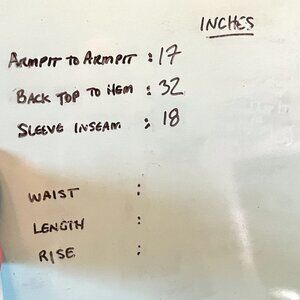 INCHES
ARMPIT TO ARMPIT : 17
BACK TOP TO HEM : 32
SLEEVE INSEAM : 18
WAIST :
LENGTH :
RISE :